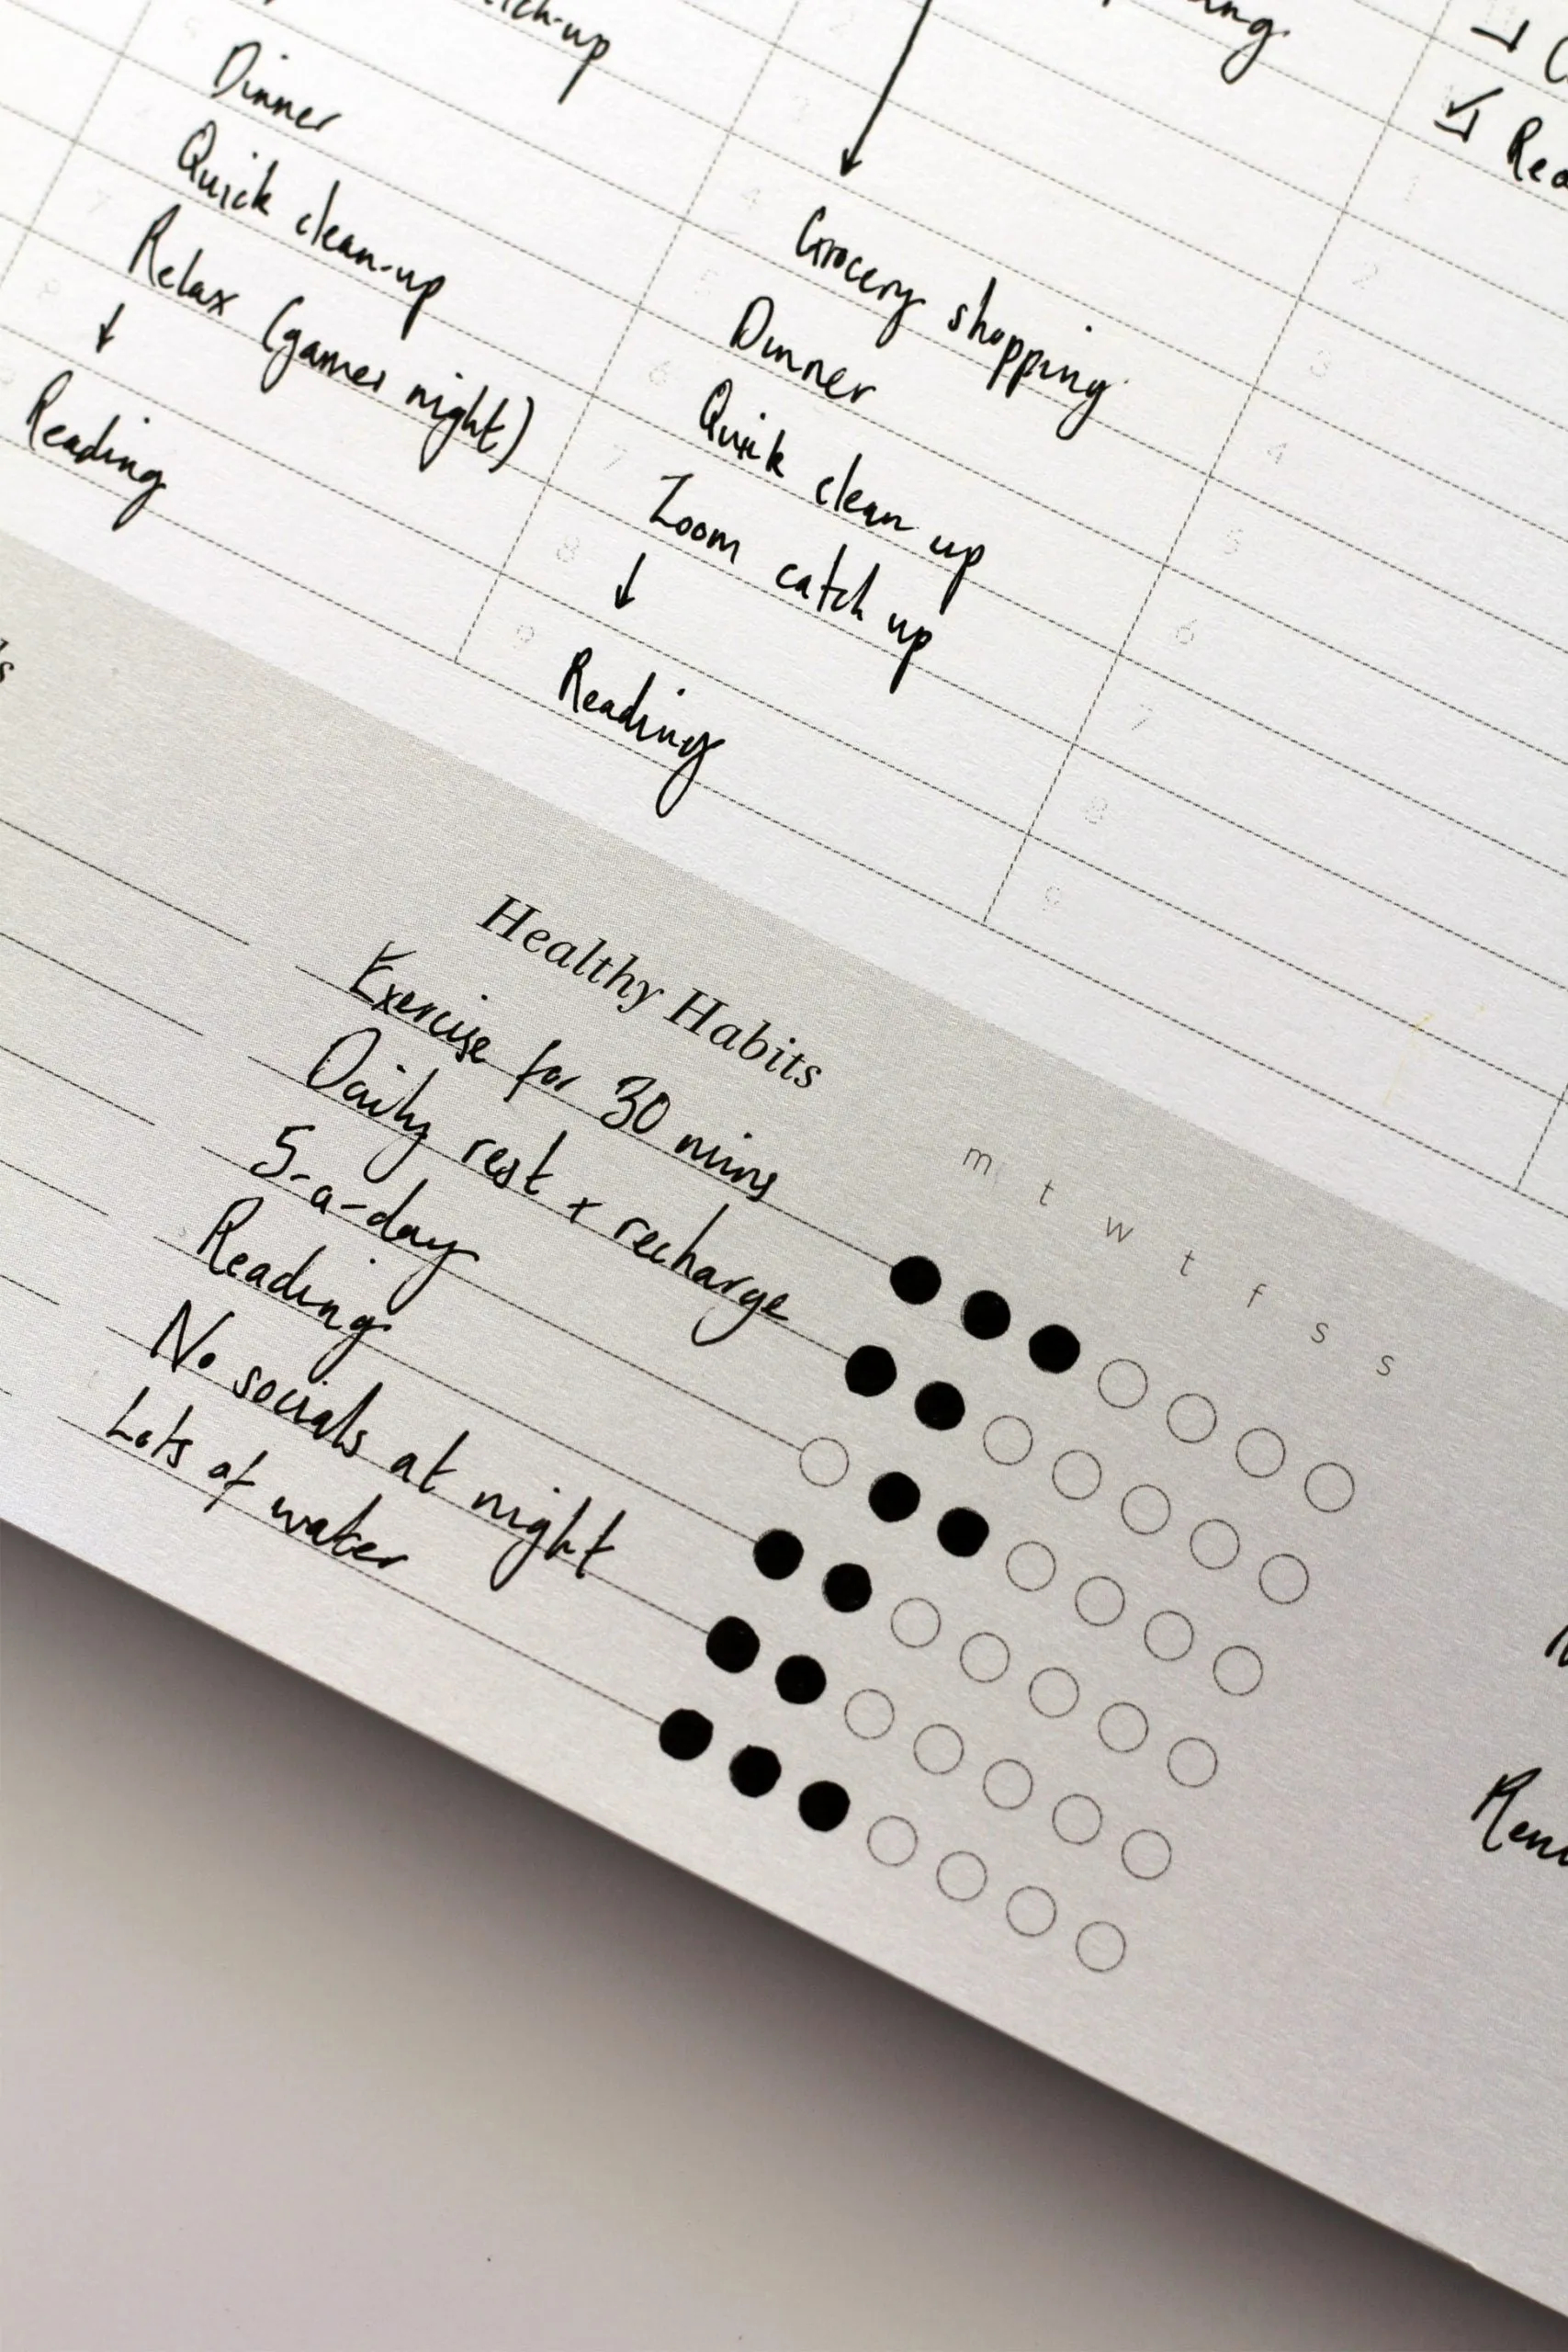 Dinner
Quick clean-up
Relax (games night)
↓
Reading
Grocery shopping
Dinner
Quick clean up
Zoom catch up
↓
Reading
4
5
6
7
8
9
1
2
3
4
5
6
7
8
9
Healthy Habits
m t w t f s s
Exercise for 30 mins
Daily rest + recharge
5-a-day
Reading
No socials at night
Lots of water